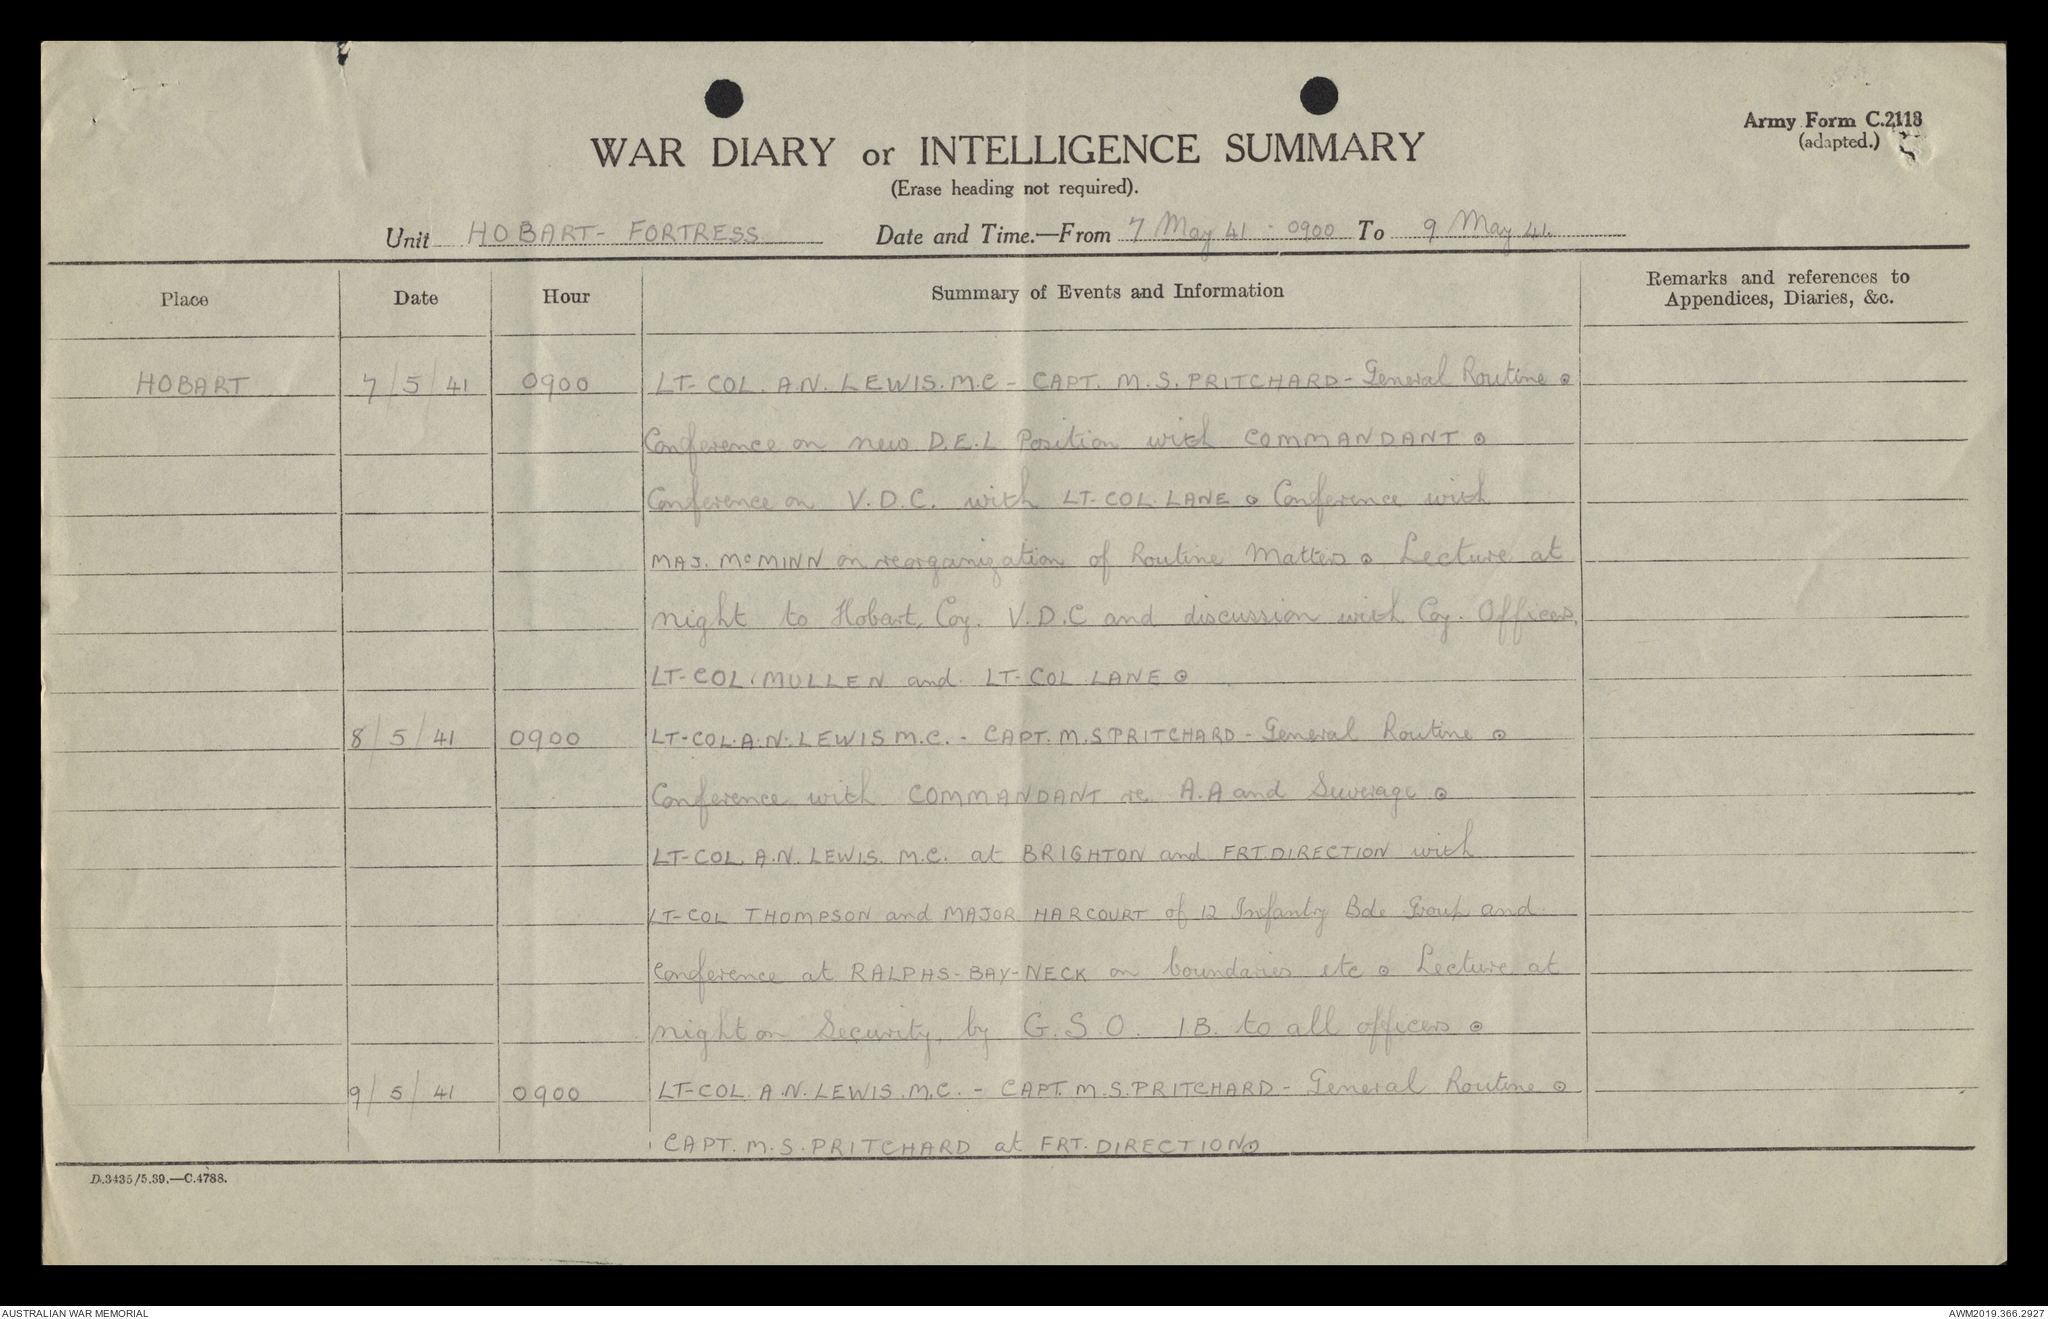 Army Form C.2118
(adapted.)
WAR DIARY or INTELLIGENCE SUMMARY
(Erase heading not required).
Unit HOBART-FORTRESS Date and Time.—From 7 May 41 - 0900 To 9 May 41.
Place Date Hour Summary of Events and Information Remarks and references to
Appendices, Diaries, &c.
HOBART 7/5/41 0900 LT-COL. A.N. LEWIS. M.C - CAPT. M.S. PRITCHARD - General Routine ⊙
Conference on new D.E.L Position with COMMANDANT ⊙
Conference on V.D.C. with LT-COL. LANE ⊙ Conference with
MAJ. McMINN on reorganization of Routine Matters ⊙ Lecture at
night to Hobart Coy. V.D.C and discussion with Coy. Officers,
LT-COL. MULLEN and LT-COL LANE ⊙
8/5/41 0900 LT-COL. A.N. LEWIS M.C. - CAPT. M.S PRITCHARD - General Routine ⊙
Conference with COMMANDANT re A.A and Suverage ⊙
LT-COL A.N. LEWIS. M.C. at BRIGHTON and FRT. DIRECTION with
LT-COL THOMPSON and MAJOR HARCOURT of 12 Infantry Bde Group and
Conference at RALPHS-BAY-NECK on boundaries etc ⊙ Lecture at
night on Security by G.S.O. 1B. to all officers ⊙
9/5/41 0900 LT-COL. A.N. LEWIS. M.C. - CAPT. M.S. PRITCHARD - General Routine ⊙
CAPT. M.S. PRITCHARD at FRT. DIRECTION ⊙
D.3435/5.39.—C.4788.
AUSTRALIAN WAR MEMORIAL AWM2019.366.2927